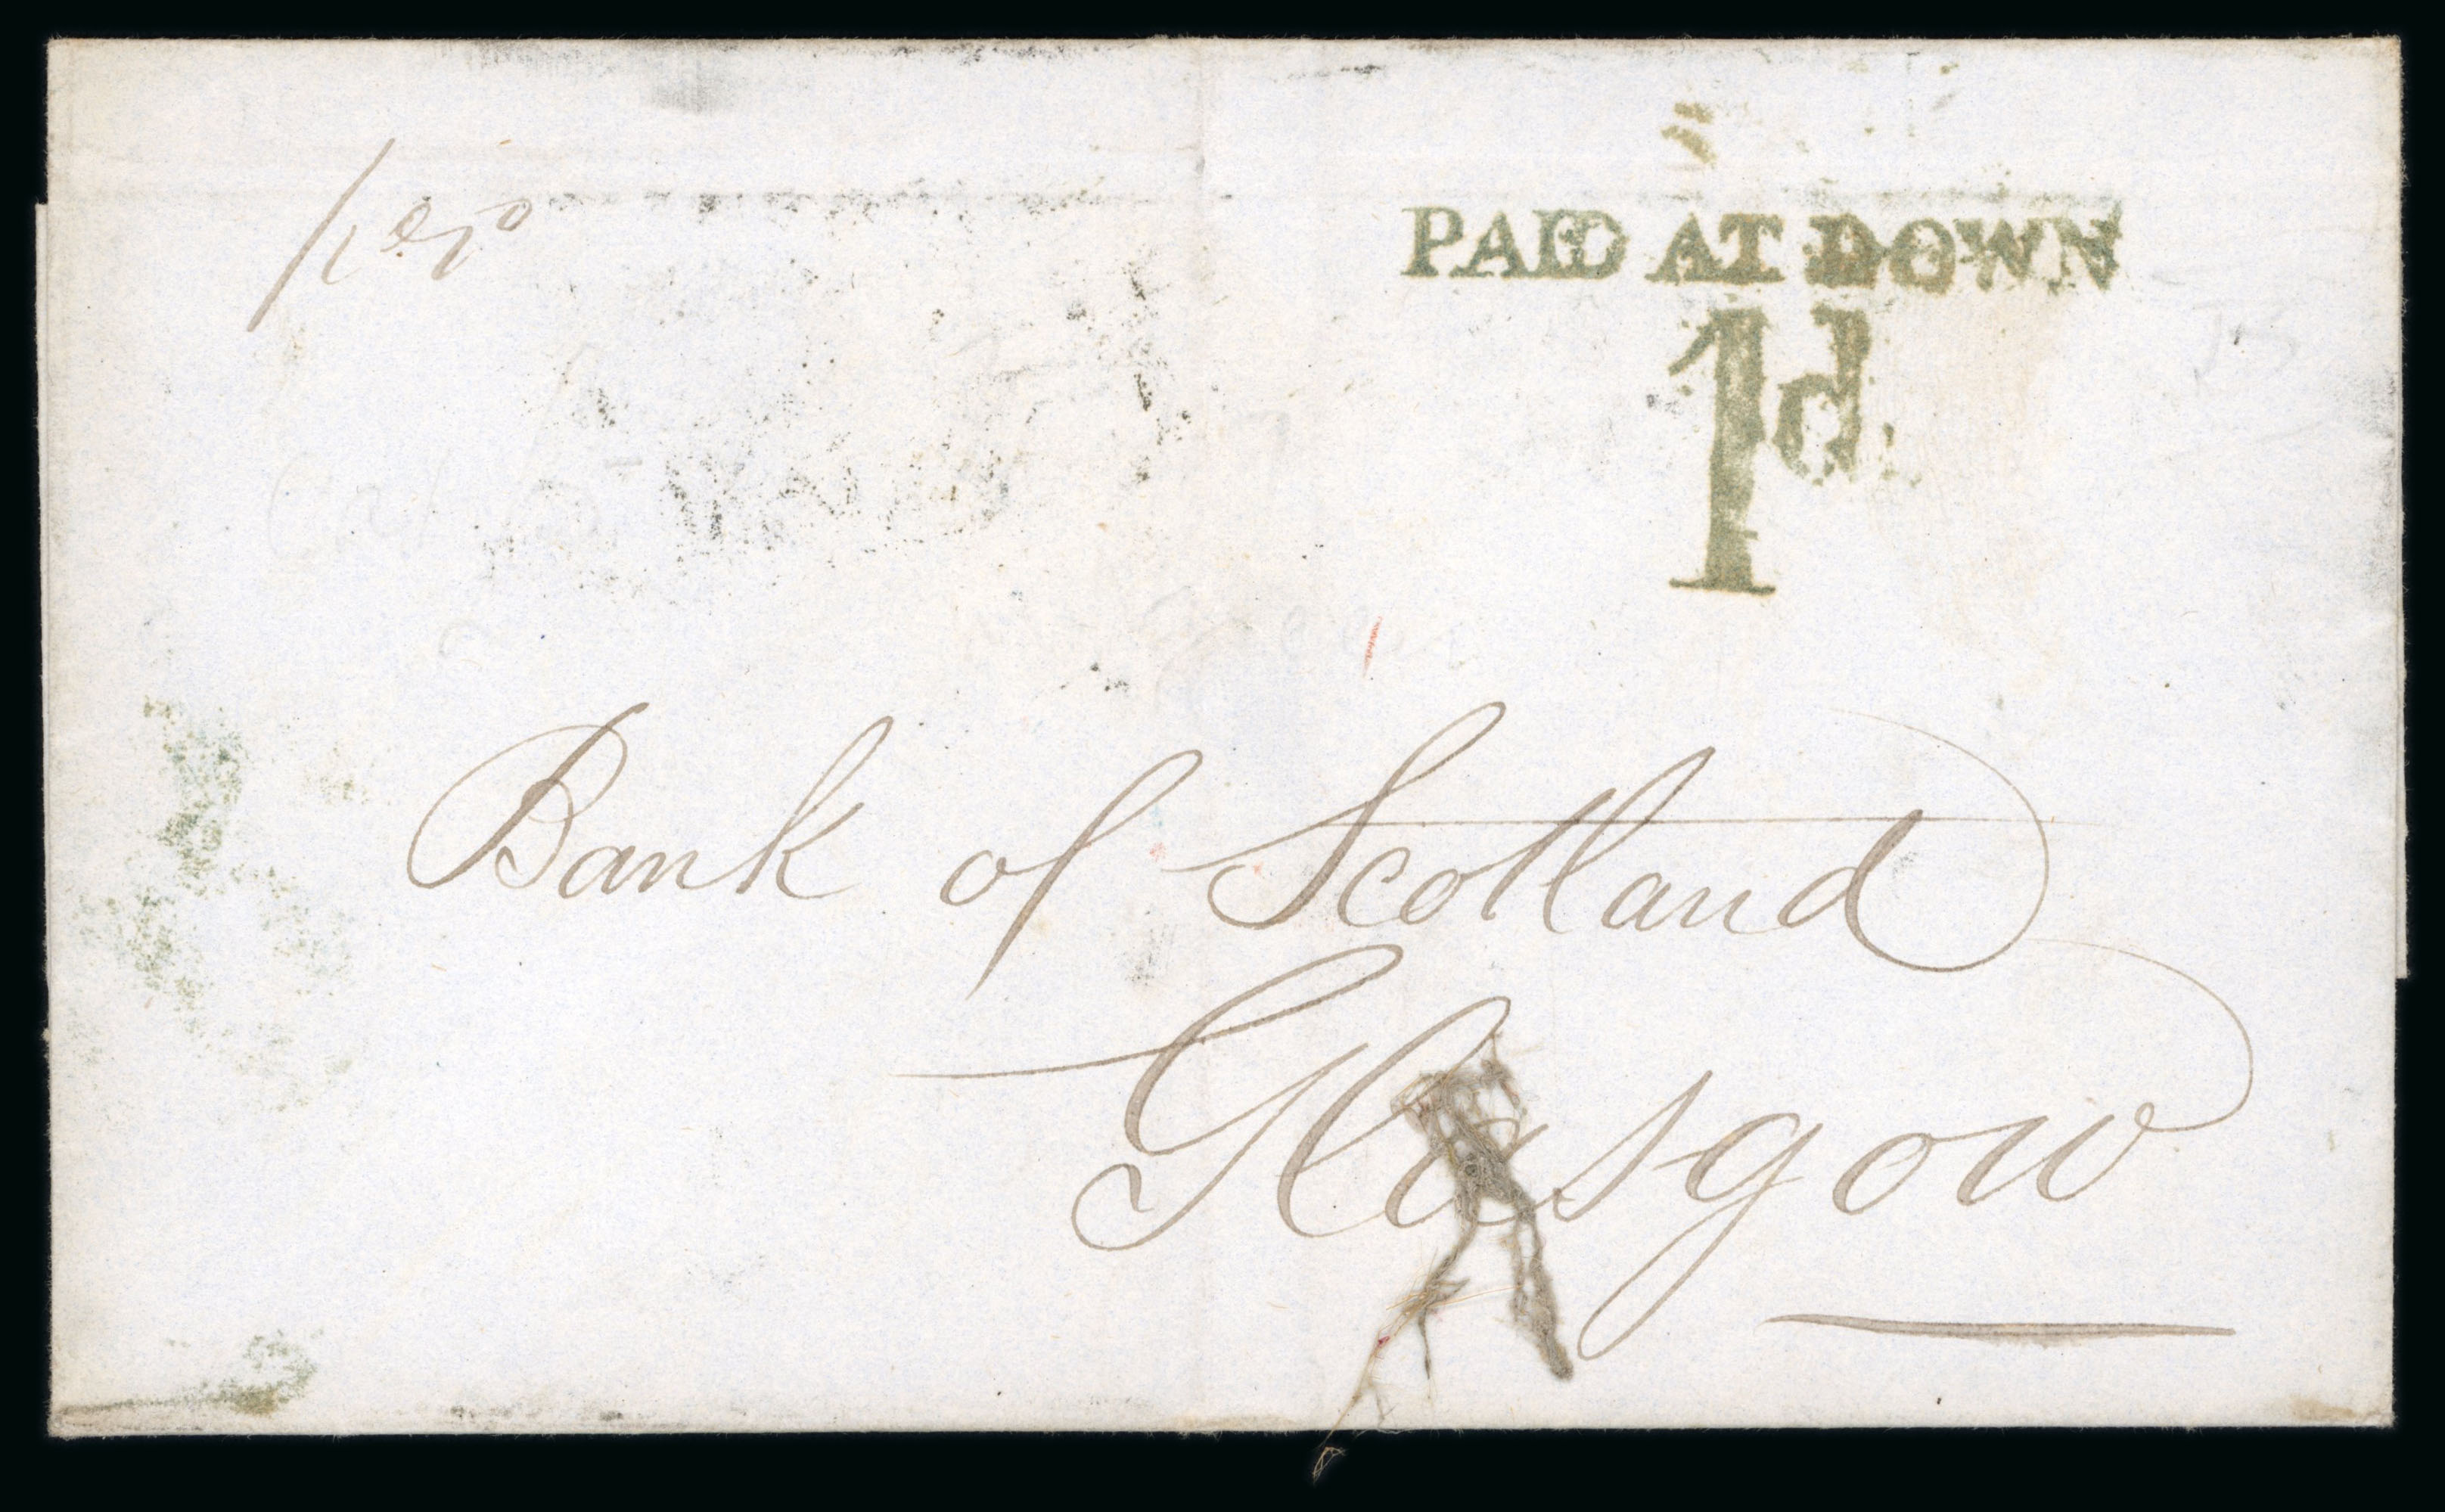 PAID AT DOWN
1d.
Bank of Scotland
Glasgow